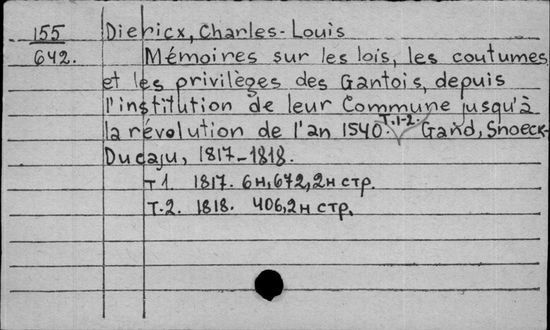 155 Diericx, Charles-Louis
642. Mémoires sur les lois, les coutumes
et les privilèges des Gantois, depuis
l'institution de leur Commune jusqu'à
la révolution de l'an 1540. T.1-2. Gand, Snoeck-
Ducaju, 1817-1818.
T 1. 1817. 6н, 672, 2н стр.
T.2. 1818. 406, 2н стр.